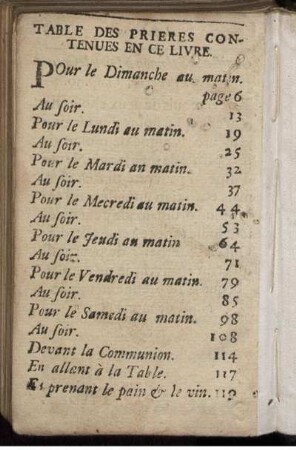 TABLE DES PRIERES CON-
TENUES EN CE LIVRE.
POur le Dimanche au matin.
page 6
Au ſoir. 13
Pour le Lundi au matin. 19
Au ſoir. 25
Pour le Mardi an matin. 32
Au ſoir. 37
Pour le Mecredi au matin. 44
Au ſoir. 53
Pour le Jeudi an matin 64
Au ſoir. 71
Pour le Vendredi au matin. 79
Au ſoir. 85
Pour le Samedi au matin. 98
Au ſoir. 108
Devant la Communion. 114
En allant à la Table. 117
Et prenant le pain & le vin. 119